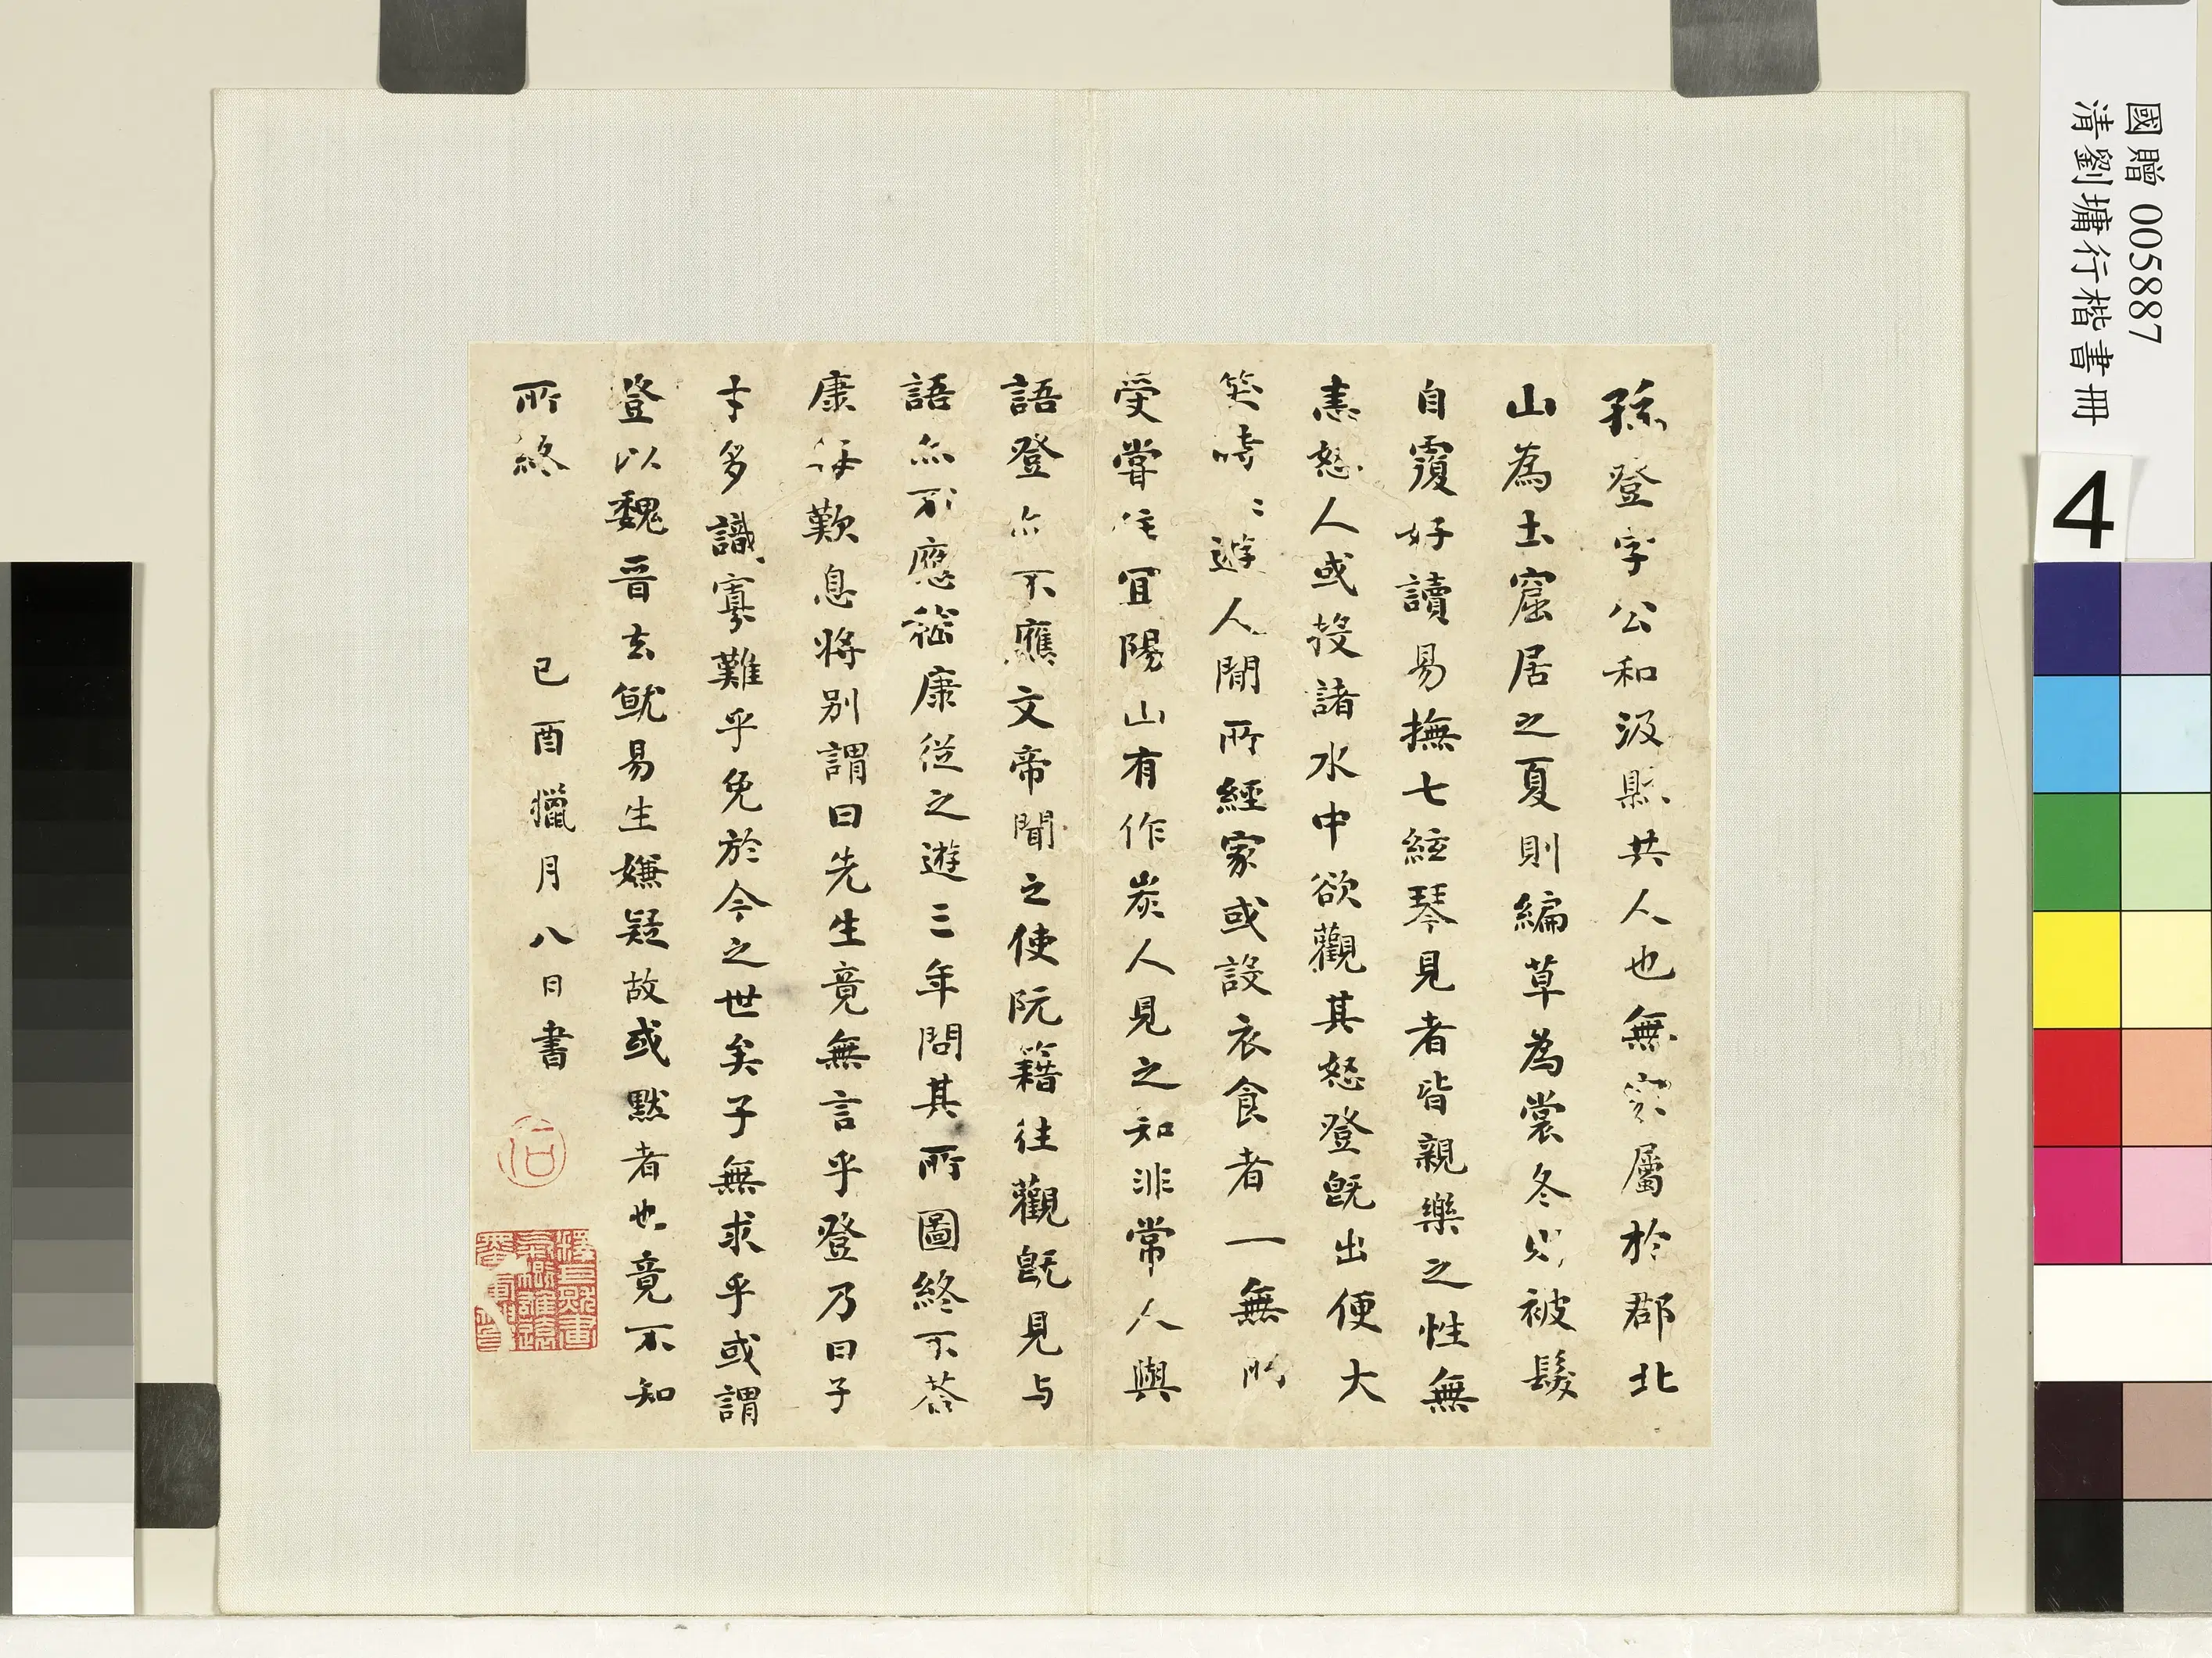 孫登字公和汲縣共人也無家屬於郡北
山為土窟居之夏則編草為裳冬則被髮
自覆好讀易撫七絃琴見者皆親樂之性無
恚怒人或投諸水中欲觀其怒登旣出便大
笑時〻遊人間所經家或設衣食者一無所
受嘗住冝陽山有作炭人見之知非常人與
語登亦不應文帝聞之使阮籍往觀旣見与
語亦不應嵇康從之遊三年問其所圖終不荅
康每歎息將別謂曰先生竟無言乎登乃曰子
才多識寡難乎免於今之世矣子無求乎或謂
登以魏晋去就易生嫌疑故或默者也竟不知
所終
己酉獵月八日書
石
國贈 005887
清劉墉行楷書冊
4